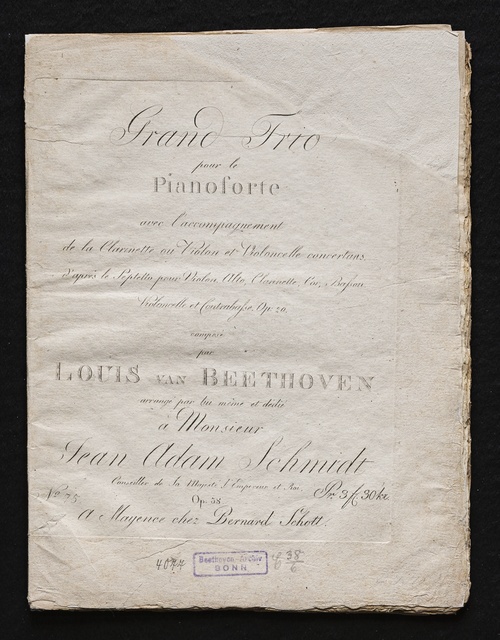 Grand Trio
pour le
Pianoforte
avec l'accompagnement
de la Clarinette ou Violon et Violoncelle concertans
d'après le Septetto pour Violon, Alto, Clarinette, Cor, Basson
Violoncelle et Contrebasse, Op. 20.
composé
par
LOUIS VAN BEETHOVEN
arrangé par lui même et dedié
à Monsieur
Jean Adam Schmidt
Conseiller de Sa Majesté l'Empereur et Roi.
Pr. 3 f. 30 kr.
No. 75.
Op. 38
A Mayence chez Bernard Schott.
Beethoven-Archiv
BONN
38
6